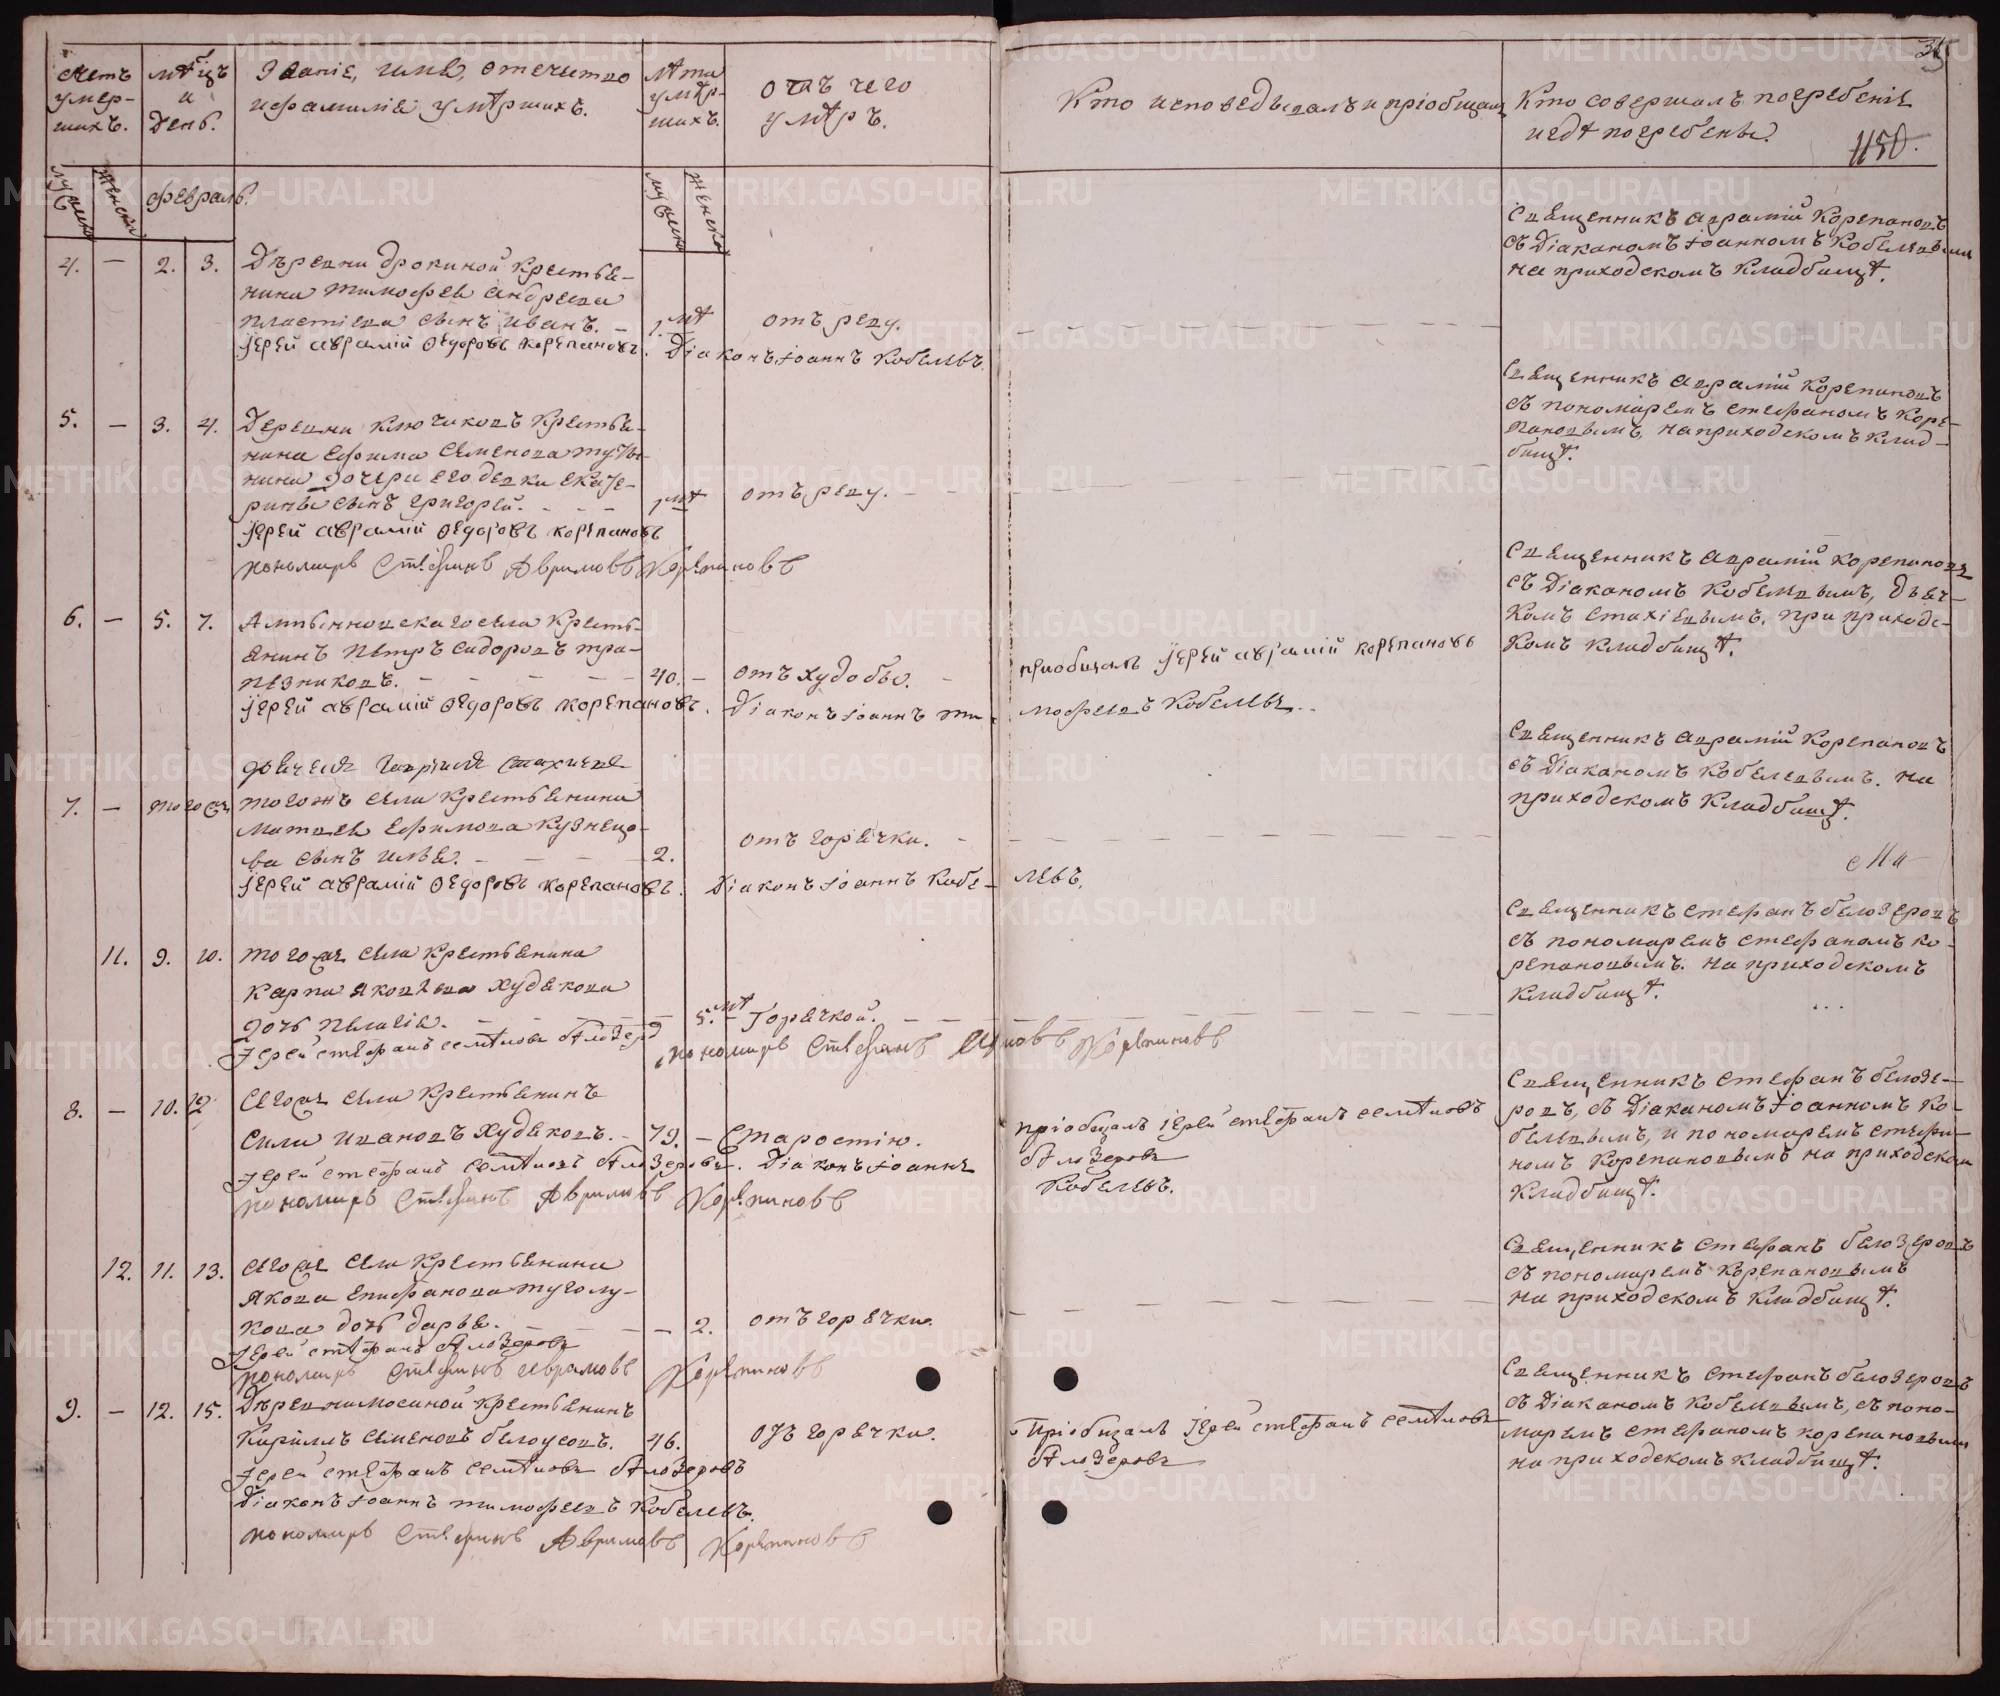 Счетъ умер-шихъ.
мѣсяцъ и День.
Званіе, имя, отечество
и фамилія умѣршихъ.
лѣта умѣр-шихъ.
отъ чего
умѣръ.
Кто исповедывалъ и пріобщалъ
Кто совершалъ погребеніе
и гдѣ погребены.
1150.
мужеска
женска
февраль.
мужеска
женска
4. — 2. 3. Дѣревни дрокиной крестья-
нина тимофея андреева
пластіева сынъ иванъ. — 1. лѣт отъ реву.
Іерей аврамій Ѳедоровъ корепановъ. Діаконъ іоаннъ кобелевъ.
Священникъ аврамій корепановъ
съ Діакономъ іоанномъ кобелевым
на приходскомъ кладбищѣ.
5. — 3. 4. Деревни ключиковъ крестья-
нина ефима семенова
дочери его девки екате-
рины сынъ григорей. 1 лѣт отъ реву.
Іерей аврамій Ѳедоровъ корепановъ
пономарь Стефанъ Аврамовъ Корепановъ
Священникъ аврамій корепановъ
съ пономаремъ стефаномъ коре-
пановымъ, на приходскомъ клад-
бищѣ.
6. — 5. 7. крестья-
янинъ петръ сидоровъ тра-
пезниковъ. 40. — отъ худобы.
Іерей аврамій Ѳедоровъ корепановъ. Діаконъ іоаннъ ти-
приобщалъ Іерей аврамій корепановъ
мофеевъ кобелевъ.
Священникъ аврамій корепановъ
съ Діакономъ кобелевымъ, дьяч-
комъ стахіевымъ, при приходс-
комъ кладбищѣ.
7. — тогож тогожъ села крестьянина
матвея ефимова кузнецо-
ва сынъ илья. 2. отъ горячки.
Іерей аврамій Ѳедоровъ корепановъ. Діаконъ іоаннъ кобе-
левъ.
Священникъ аврамій корепановъ
съ Діакономъ кобелевымъ. на
приходскомъ кладбищѣ.
11. 9. 10. тогож села крестьянина
карпа яковлева худякова
дочь пелагія. 5. лѣт Горячкой.
Іерей стефанъ бѣлозеро
пономарь Стефанъ Корепановъ
Священникъ стефанъ белозеровъ
съ пономаремъ стефаномъ ко-
репановымъ. на приходскомъ
кладбищѣ.
8. — 10. 12 сегож села крестьянинъ
сила ивановъ худяковъ. 79. — Старостію.
Іерей стефанъ бѣлозеровъ. Діаконъ іоаннъ
пономарь Стефанъ Аврамовъ Корепановъ
пріобщалъ іерей стефанъ
бѣлозеровъ
кобелевъ.
Священникъ стефанъ белозе-
ровъ, съ Діакономъ іоанномъ ко-
белевымъ, и пономаремъ стефа-
номъ корепановымъ на приходском
кладбищѣ.
12. 11. 13. сегож села крестьянина
якова епифанова туголу-
кова дочь дарья. — 2. отъ горячки.
Іерей стефанъ бѣлозеровъ
пономарь Стефанъ Аврамовъ Корепановъ
Священникъ стефанъ белозеровъ
съ пономаремъ корепановымъ
на приходскомъ кладбищѣ.
9. — 12. 15. Деревни мосиной крестьянинъ
Кирилъ семеновъ белоусовъ. 46. отъ горячки.
Іерей стефанъ бѣлозеровъ
Діаконъ іоаннъ тимофеевъ кобелевъ.
пономарь Стефанъ Аврамовъ Корепановъ
Пріобщалъ іерей стефанъ
бѣлозеровъ
Священникъ стефанъ белозеровъ
съ Діакономъ кобелевымъ, съ поно-
маремъ стефаномъ корепановым
на приходскомъ кладбищѣ.
METRIKI.GASO-URAL.RU